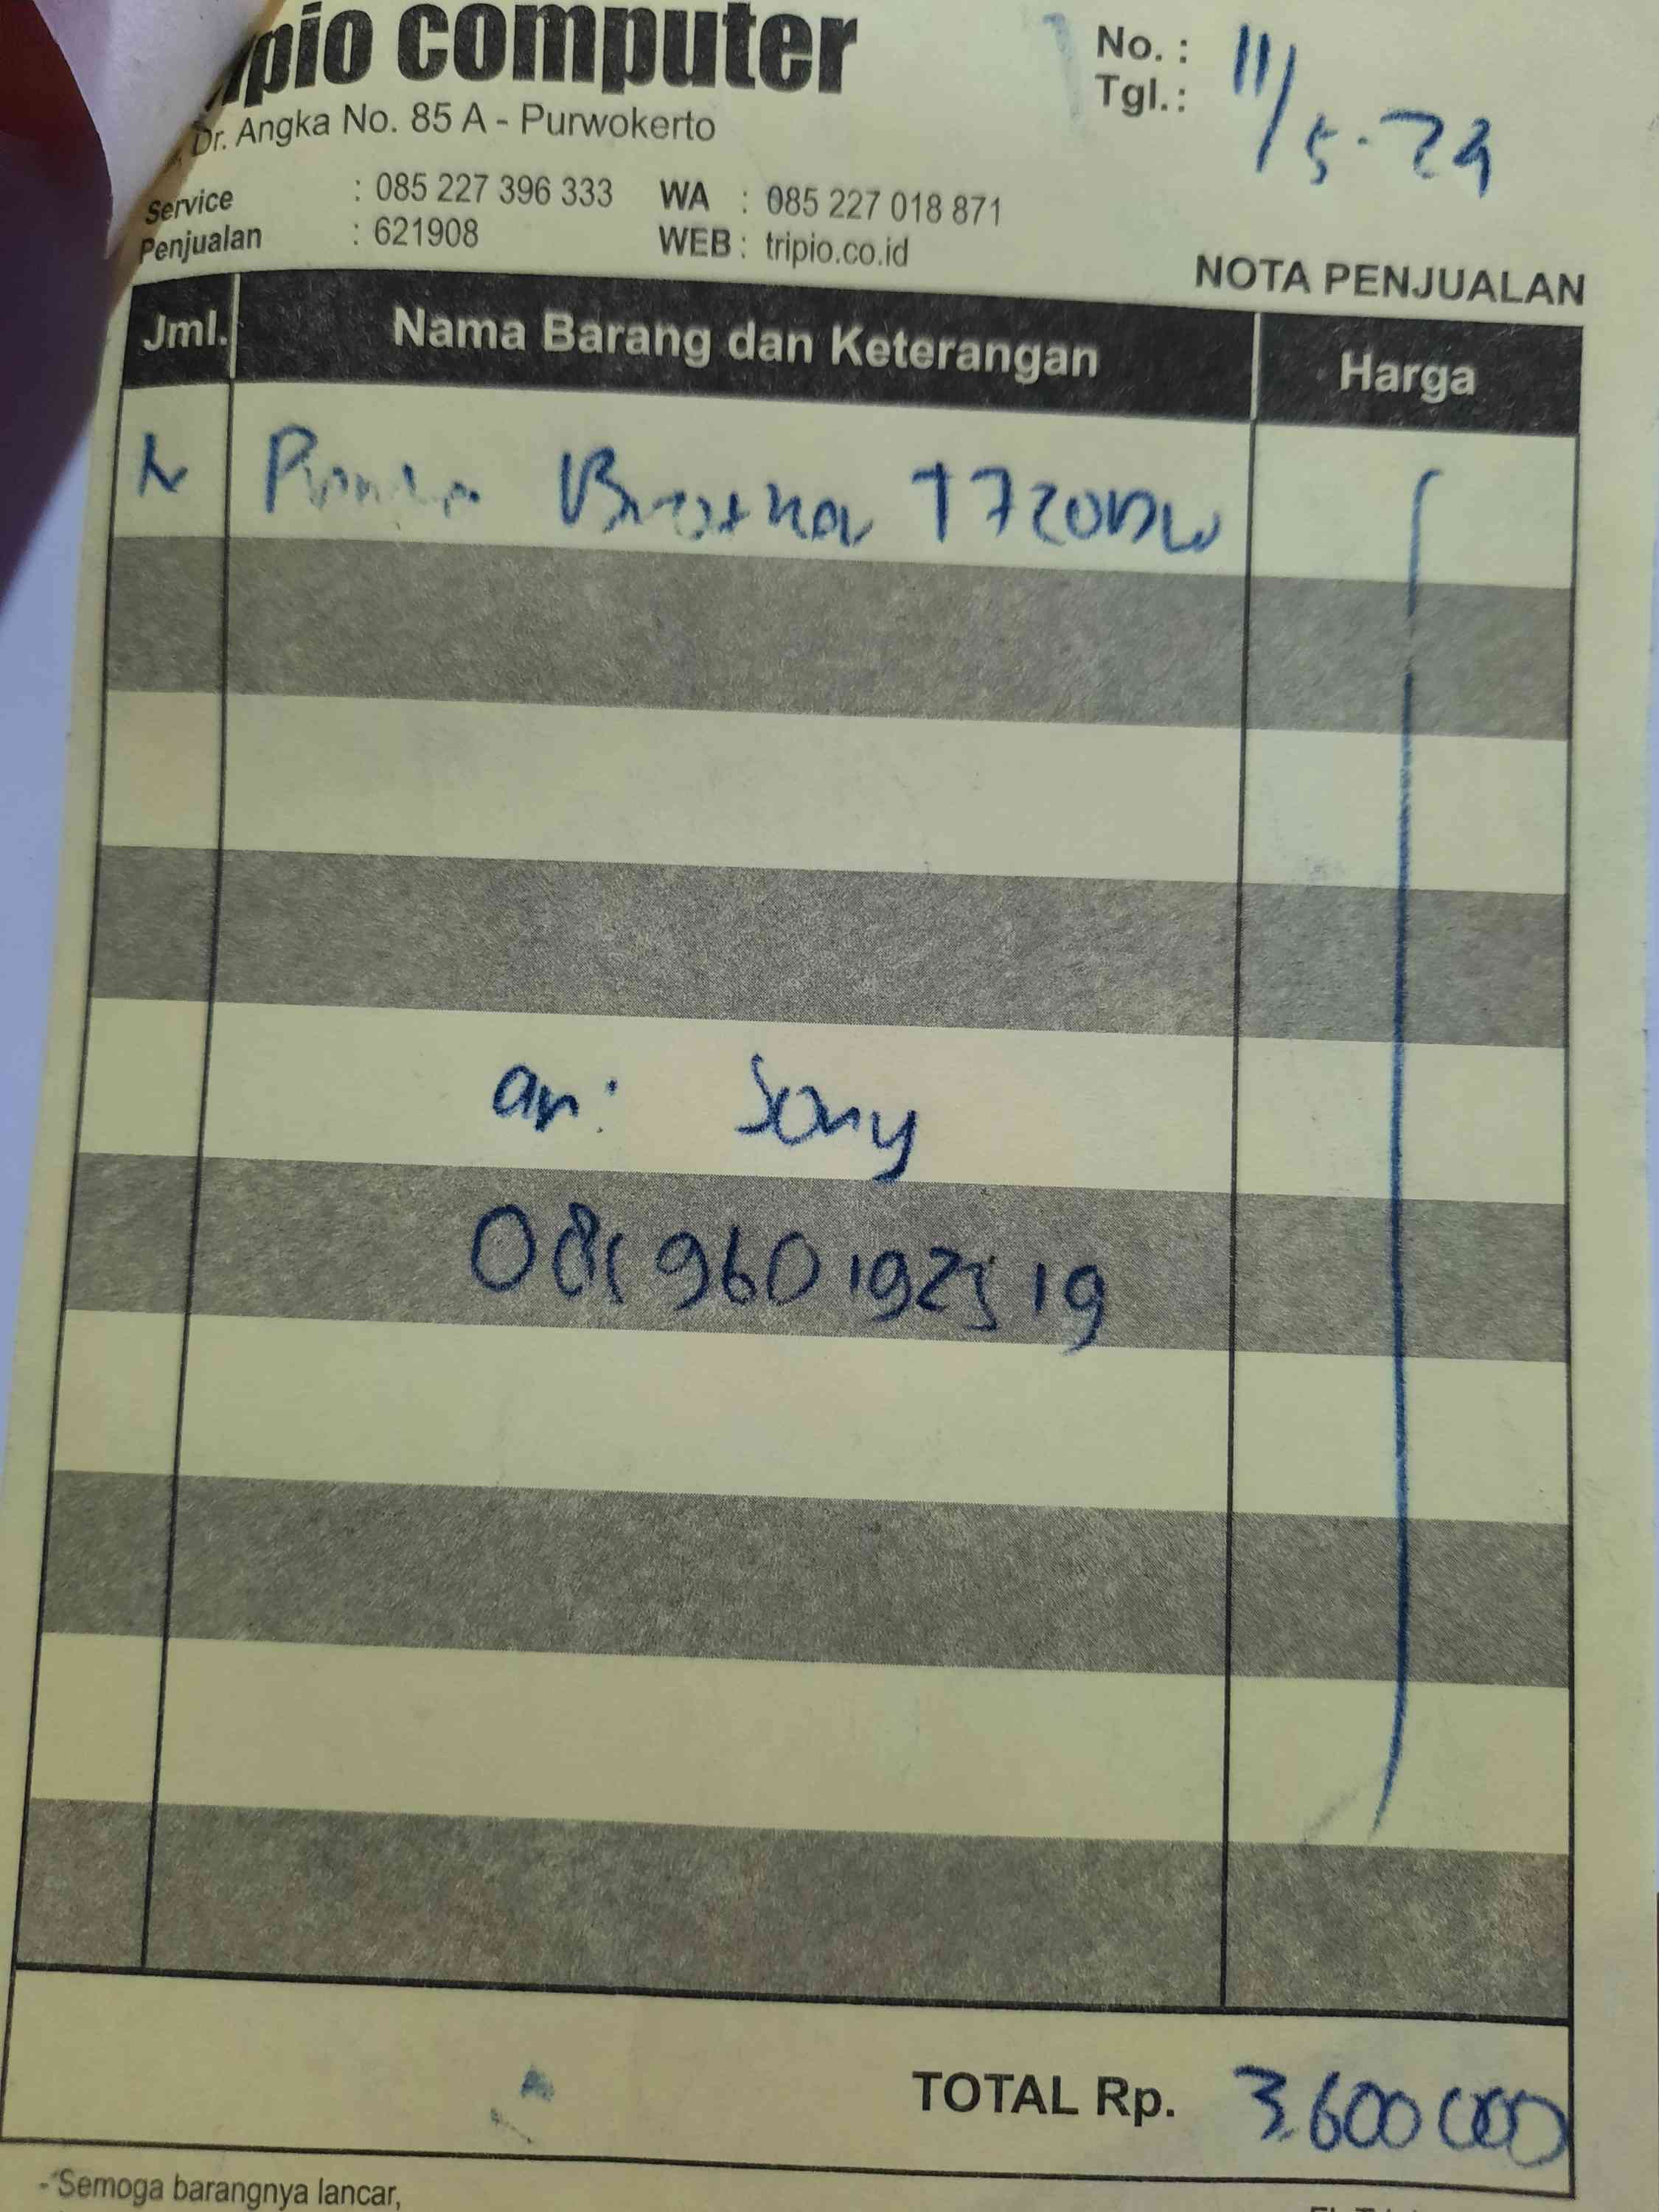 ipio computer
Dr. Angka No. 85 A - Purwokerto
Service : 085 227 396 333 WA : 085 227 018 871
Penjualan : 621908 WEB : tripio.co.id
No. :
Tgl. : 11/5-24
NOTA PENJUALAN
Jml. Nama Barang dan Keterangan Harga
Brother T720DW
an: Sony
TOTAL Rp. 3.600 000
- Semoga barangnya lancar,